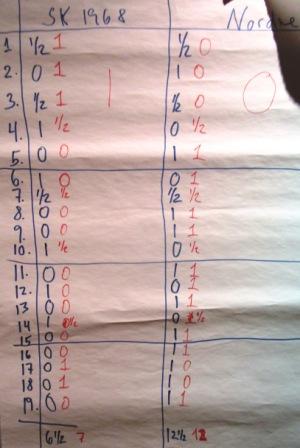 SK 1968 Nordre
1 ½ 1 ½ 0
2. 0 1 1 0
3. ½ 1 ½ 0
1 0
4. 1 ½ 0 ½
5. 0 0 1 1
6. 1 0 0 1
7. ½ ½ ½ ½
8. 0 0 1 1
9. 0 0 1 1
10. 1 ½ 0 ½
11. 0 0 1 1
12. 1 0 0 1
13 0 0 1 1
14 1 ½ 0 ½
15 0 0 1 1
16 0 0 1 1
17 0 1 1 0
18 0 1 1 0
19. 0 0 1 1
6½ 7 12½ 12